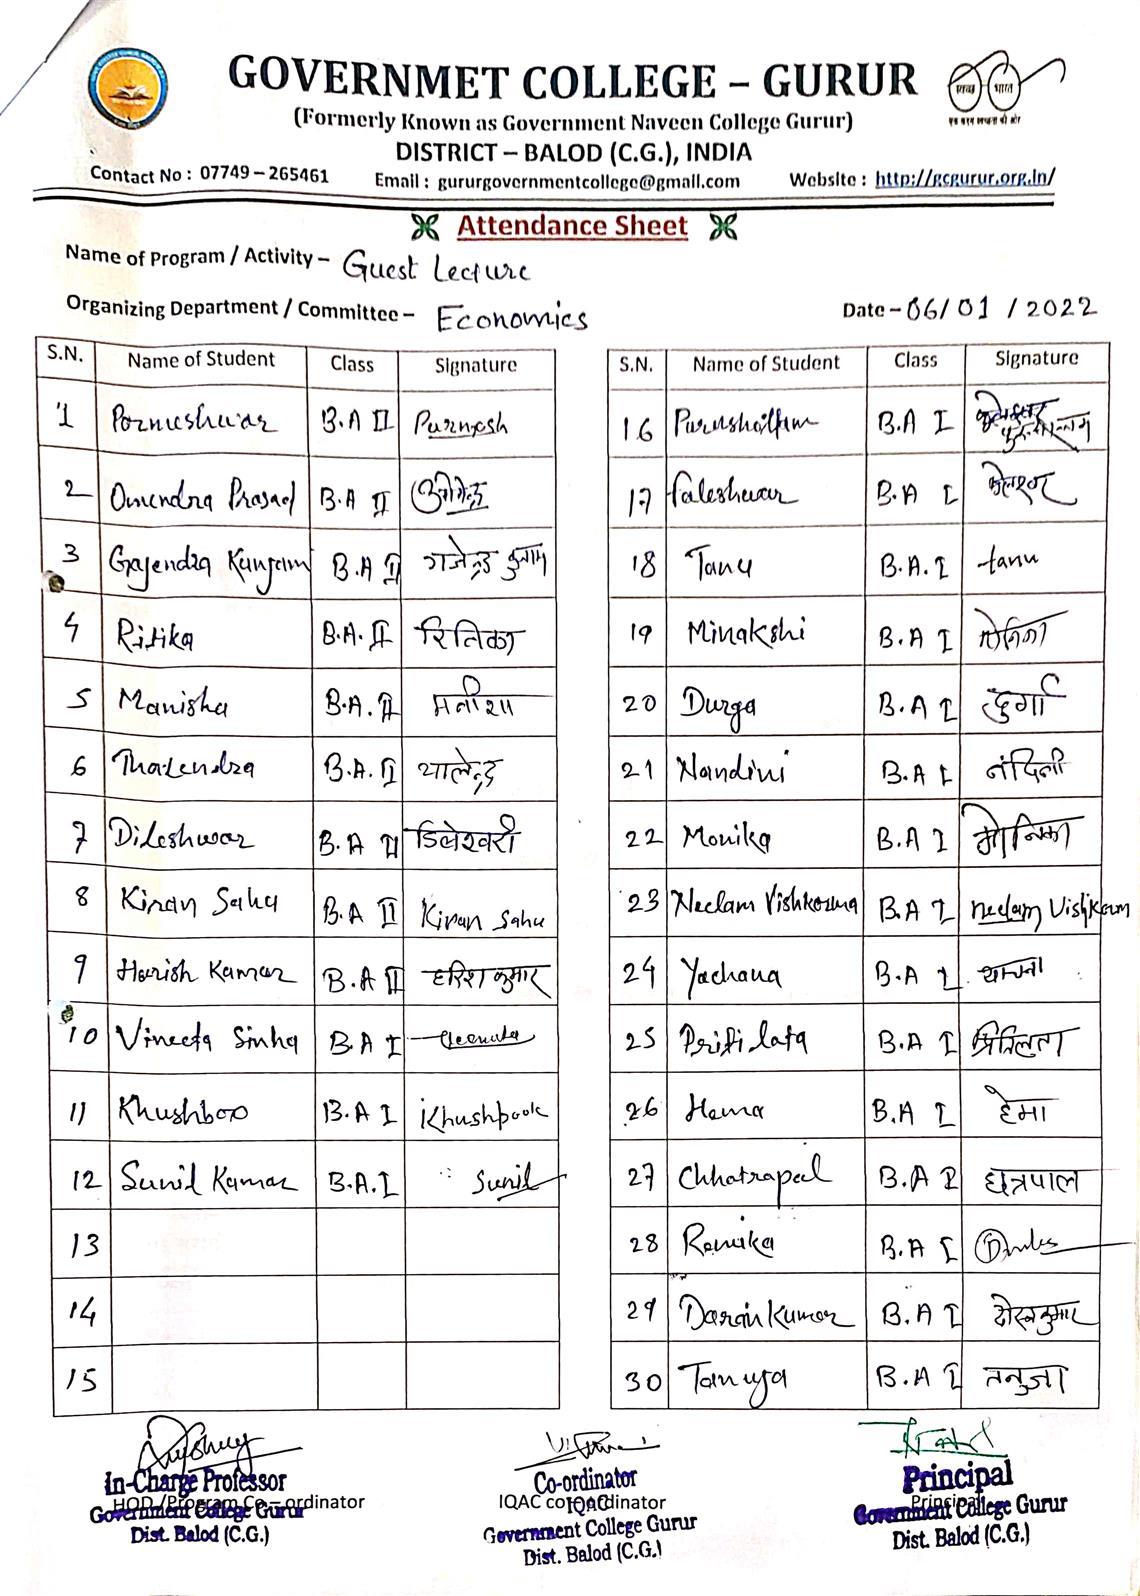 GOVERNMET COLLEGE – GURUR
(Formerly Known as Government Naveen College Gurur)
DISTRICT – BALOD (C.G.), INDIA
Contact No : 07749 – 265461 Email : gururgovernmentcollege@gmail.com Website : http://gcgurur.org.in/
स्वच्छ भारत
एक कदम स्वच्छता की ओर
Attendance Sheet
Name of Program / Activity – Guest Lecture
Organizing Department / Committee – Economics Date – 06/01/2022
S.N. Name of Student Class Signature
1 Pormeshwar B.A II Purnesh
2 Omendra Prasad B.A II
3 Gajendra Kunjam B.A II गजेन्द्र कुंजाम
4 Ritika B.A. II रितिका
5 Manisha B.A. II मनीशा
6 Thalendra B.A. II थालेन्द्र
7 Dileshwar B.A II डिलेश्वरी
8 Kiran Sahu B.A II Kiran Sahu
9 Harish Kumar B.A II हरिश कुमार
10 Vineeta Sinha B.A I
11 Khushboo B.A I Khushbook
12 Sunil Kumar B.A. I Sunil
13
14
15
S.N. Name of Student Class Signature
16 Purushottam B.A I
17 Faleshwar B.A I
18 Tanu B.A. I tanu
19 Minakshi B.A I
20 Durga B.A I दुर्गा
21 Nandini B.A I नंदिनी
22 Monika B.A I मोनिका
23 Neelam Vishkorma B.A I Neelam Vishkam
24 Yachana B.A I याचना
25 Priti lata B.A I प्रितिलता
26 Hema B.A I हेमा
27 Chhatrapal B.A I छत्रपाल
28 Renuka B.A I
29 Daran Kumar B.A I
30 Tanuja B.A I तनुजा
In-Charge Professor
HOD / Program Co – ordinator
Government College Gurur
Dist. Balod (C.G.)
Co-ordinator
IQAC co – ordinator
IQAC
Government College Gurur
Dist. Balod (C.G.)
Principal
Principal
Government College Gurur
Dist. Balod (C.G.)